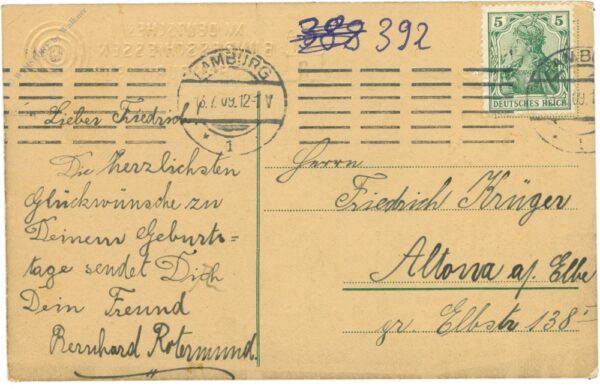 388 392
5 5
DEUTSCHES REICH
HAMBURG
13.7.09.12-1 V
* 1
Lieber Friedrich
Die herzlichsten
Glückwünsche zu
Deinem Geburts=
tage sendet Dich
Dein Freund
Bernhard Rotermund.
Herrn
Friedrich Krüger
Altona a/ Elbe
gr. Elbstr 138 I